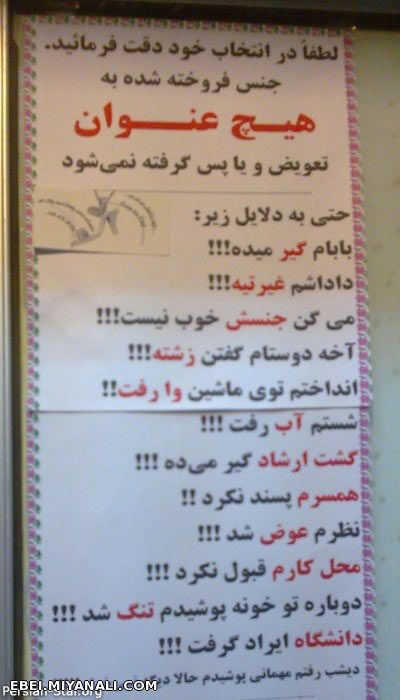 لطفاً در انتخاب خود دقت فرمائید.
جنس فروخته شده به
هیچ عنوان
تعویض و یا پس گرفته نمی‌شود
حتی به دلایل زیر:
بابام گیر میده!!!
داداشم غیرتیه!!!
می گن جنسش خوب نیست!!!
آخه دوستام گفتن زشته!!!
انداختم توی ماشین وا رفت!!
شستم آب رفت !!!
گشت ارشاد گیر می‌ده !!!
همسرم پسند نکرد !!
نظرم عوض شد !!!
محل کارم قبول نکرد !!!
دوباره تو خونه پوشیدم تنگ شد !!!
دانشگاه ایراد گرفت !!!
دیشب رفتم مهمانی پوشیدم حالا
Persian-Star.org
EBEI.MIYANALI.COM